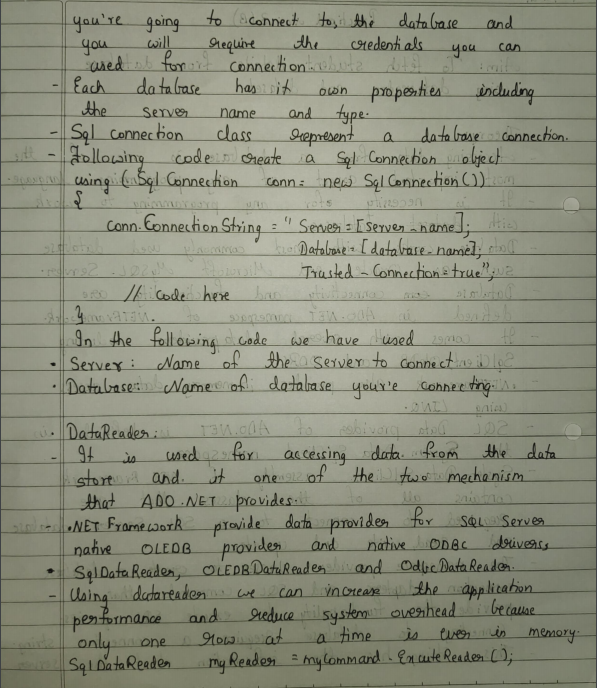 you're going to connect to, the database and
you will require the credentials you can
used for connection.
- Each database has it own properties including
the server name and type.
- Sql connection class represent a database connection.
- Following code create a Sql Connection object
using (Sql Connection conn = new Sql Connection())
{
conn.ConnectionString = " Server = [server_name];
Database = [database_name];
Trusted - Connection = true";
// code here
}.
In the following code we have used
• Server: Name of the Server to connect.
• Database: Name of database your're connecting.
• DataReader:
- It is used for accessing data from the data
store and it one of the two mechanism
that ADO.NET provides.
- .NET Framework provide data provider for SQL Server
native OLEDB provider and native ODBC drivers,
• SqlDataReader, OLEDBDataReader and OdbcDataReader.
- Using datareader we can increase the application
performance and reduce system overhead because
only one row at a time is ever in memory.
Sql DataReader myReader = myCommand.ExcuteReader();